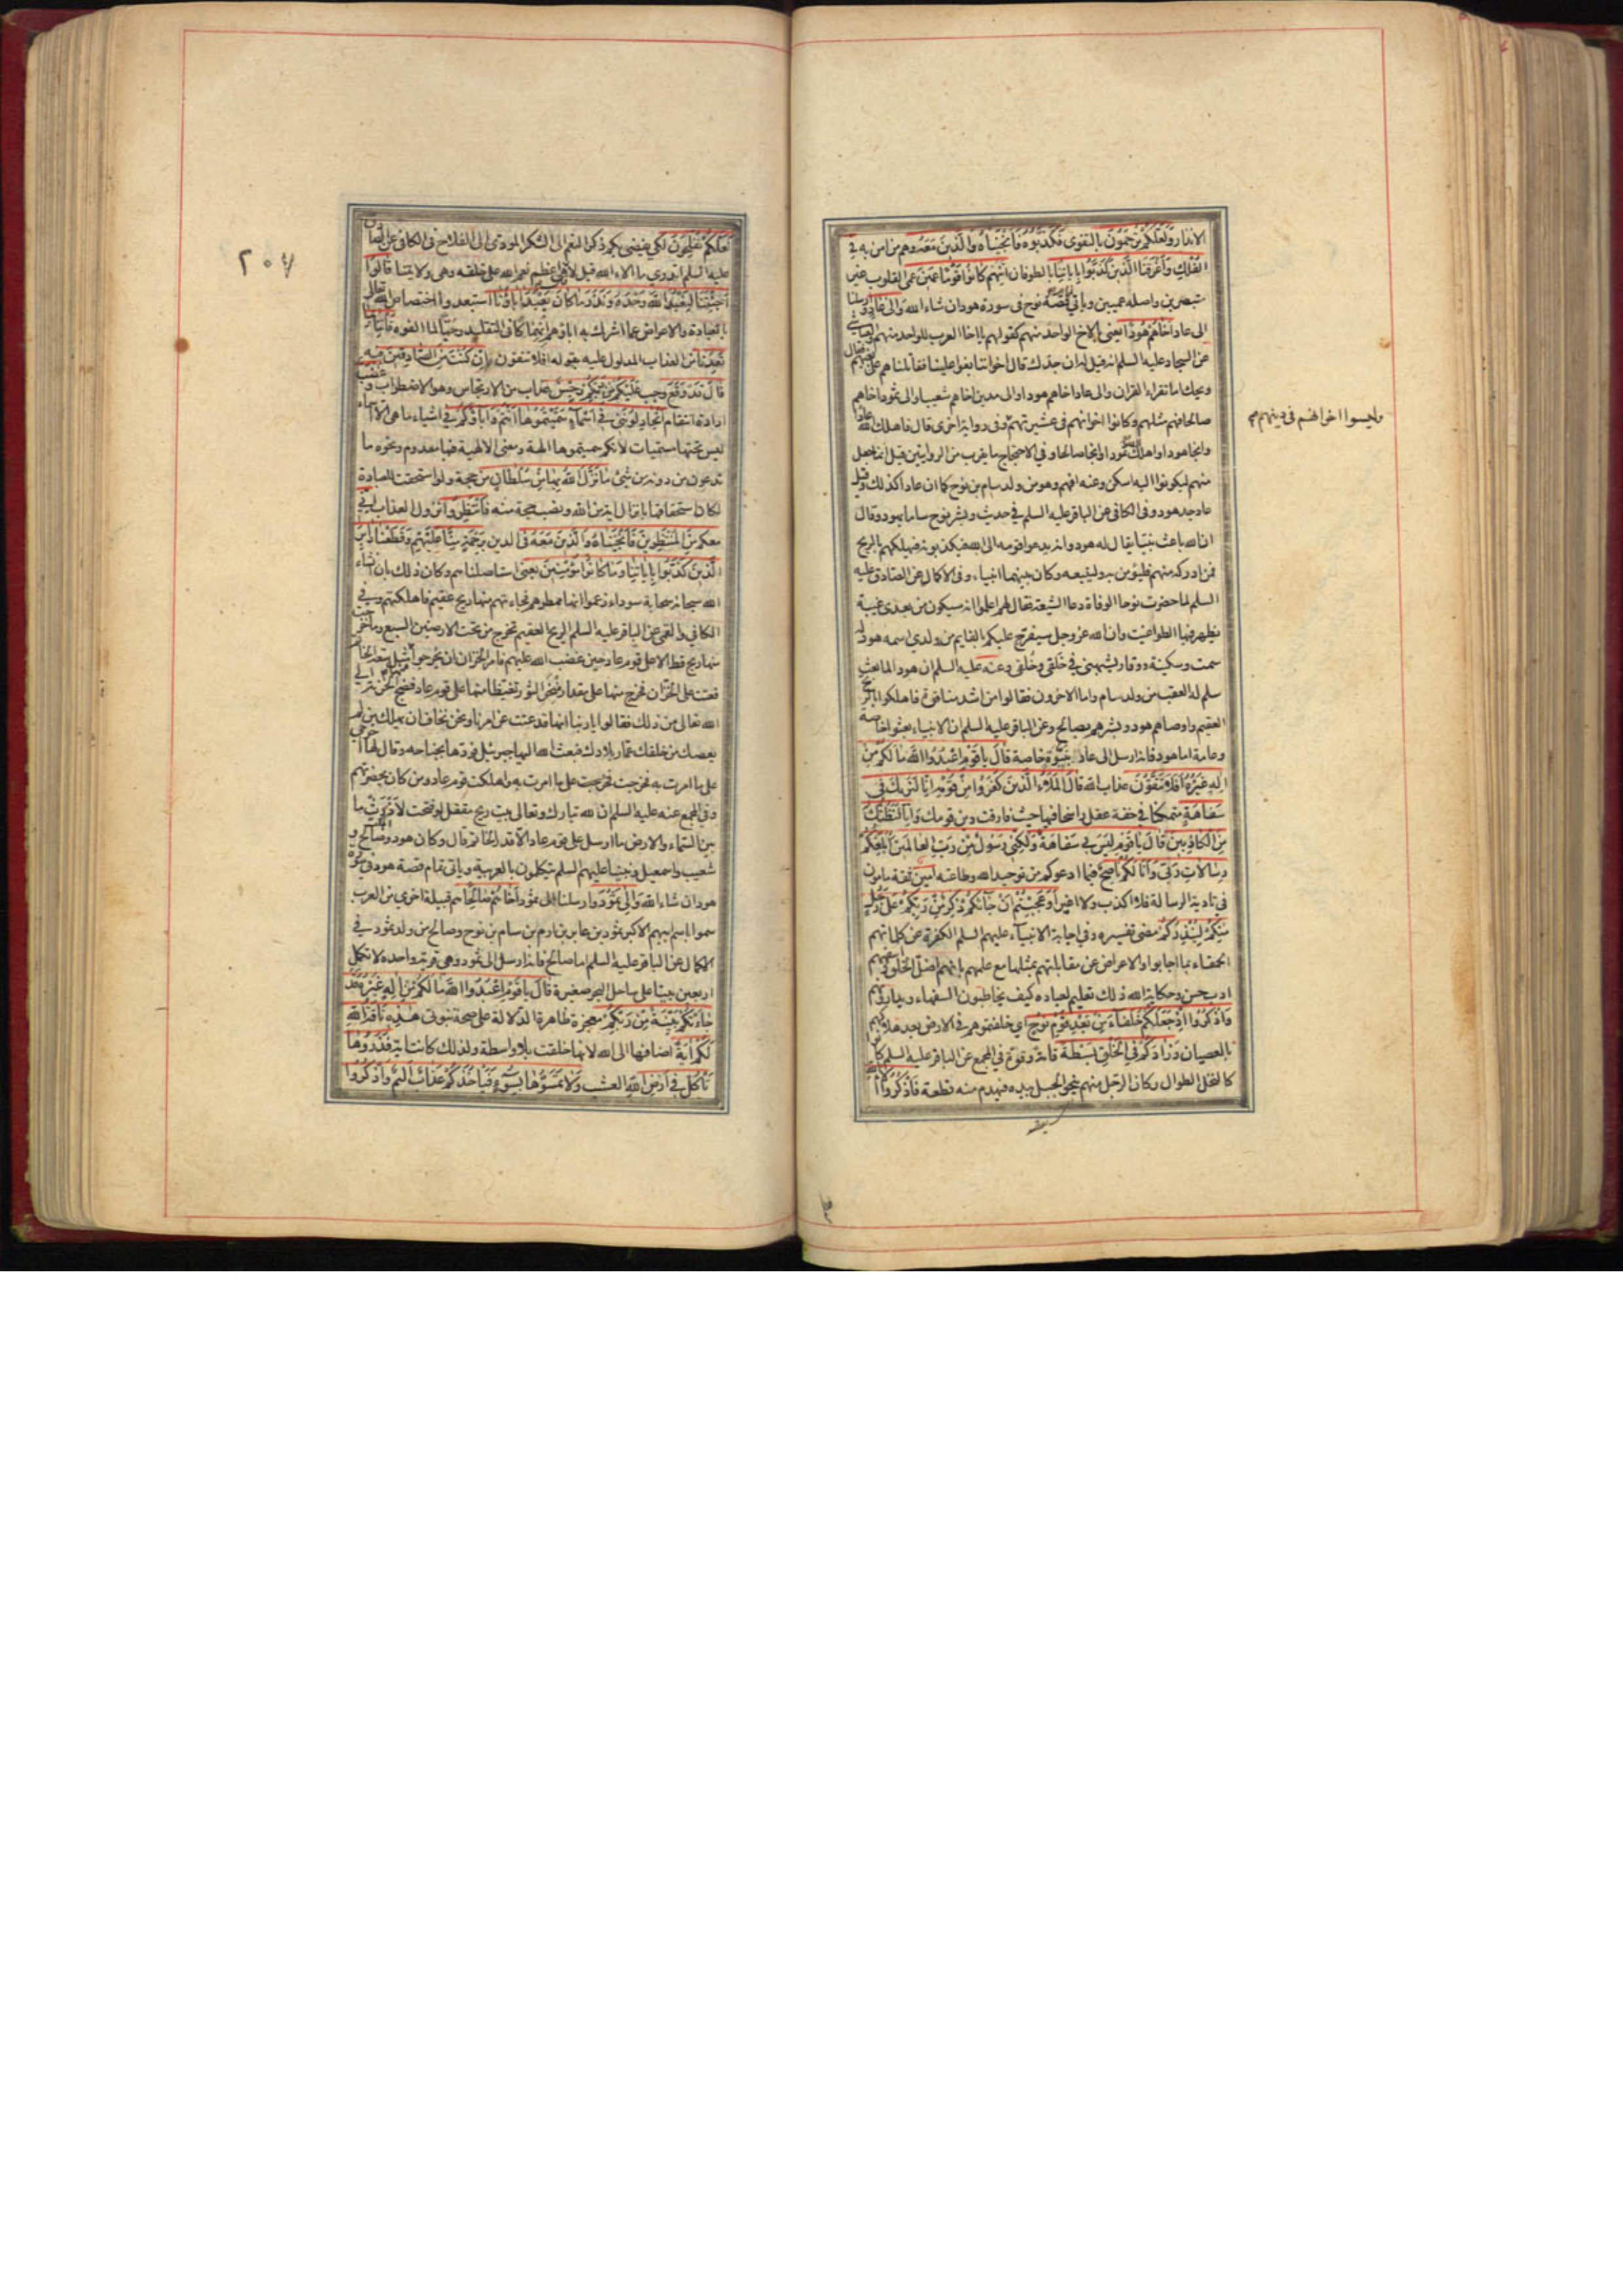 الانذار وَلَعَلَّكُمْ تُرْحَمُونَ بالتقوى فَكَذَّبُوهُ فَأَنْجَيْنَاهُ وَالَّذِينَ مَعَهُ وهم من امن به فِي
الْفُلْكِ وَأَغْرَقْنَا الَّذِينَ كَذَّبُوا بِآيَاتِنَا بالطوفان إِنَّهُمْ كَانُوا قَوْمًا عَمِينَ عمى القلوب غير
متبصرين واصله عميين وياتي قصة نوح فى سورة هود ان شاء الله وَإِلَى عَادٍ وارسلنا
الى عاد أَخَاهُمْ هُودًا يعنى بالاخ الواحد منهم كقولهم يا اخا العرب للواحد منهم والعياشى
عن السجاد عليه السلم انه قيل له ان جدك قال اخواننا بغوا علينا فقاتلناهم على بغيهم فقال
ويحك اما تقرا القران والى عاد اخاهم هودا والى مدين اخاهم شعيبا والى ثمود اخاهم
صالحا فهم مثلهم وكانوا اخوانهم فى عشيرتهم وفى رواية اخرى قال فاهلك الله عادا
وليسوا اخوانهم فى دينهم
وانجا هودا واهلك الله ثمود وانجا صالحا وفي الاحتجاج ما يقرب من الروايتين قيل انما جعل
منهم ليكونوا اليه اسكن وعنه افهم وهو من ولد سام بن نوح كما ان عادا كذلك وقيل
عاد جد هود وفى الكافى عن الباقر عليه السلم في حديث وبشر نوح ساما بهود وقال
ان الله باعث نبيا يقال له هود وانه يدعوا قومه الى الله فيكذبونه فيهلكهم بالريح
فمن ادركه منهم فليؤمن به وليتبعه وكان بينهما انبياء وفى الاكمال عن الصادق عليه
السلم لما حضرت نوحا الوفاة دعا الشيعة فقال لهم اعلموا انه سيكون من بعدى غيبة
يظهر فيها الطواغيت وان الله عز وجل سيفرج عليكم بالقايم من ولدي اسمه هود له
سمت وسكينة ووقار يشبهنى في خلقى وخلقى وعنه عليه السلم ان هودا لما بعث
سلم له العقب من ولد سام واما الاخرون فقالوا من اشد منا قوة فاهلكوا بالريح
العقيم واوصاهم هود وبشرهم بصالح وعن الباقر عليه السلم ان الانبياء بعثوا خاصة
وعامة اما هود فانه ارسل الى عاد بنبوة خاصة قَالَ يَا قَوْمِ اعْبُدُوا اللَّهَ مَا لَكُمْ مِنْ
إِلَهٍ غَيْرُهُ أَفَلَا تَتَّقُونَ عذاب الله قَالَ الْمَلَأُ الَّذِينَ كَفَرُوا مِنْ قَوْمِهِ إِنَّا لَنَرَاكَ فِي
سَفَاهَةٍ متمكنا في خفة عقل راسخا فيها حيث فارقت دين قومك وَإِنَّا لَنَظُنُّكَ
مِنَ الْكَاذِبِينَ قَالَ يَا قَوْمِ لَيْسَ بِي سَفَاهَةٌ وَلَكِنِّي رَسُولٌ مِنْ رَبِّ الْعَالَمِينَ أُبَلِّغُكُمْ
رِسَالَاتِ رَبِّي وَأَنَا لَكُمْ نَاصِحٌ فيما ادعوكم من توحيد الله وطاعته أَمِينٌ ثقة مامون
فى تادية الرسالة فلا اكذب ولا اغير أَوَعَجِبْتُمْ أَنْ جَاءَكُمْ ذِكْرٌ مِنْ رَبِّكُمْ عَلَى رَجُلٍ
مِنْكُمْ لِيُنْذِرَكُمْ مضى تفسيره وفي اجابة الانبياء عليهم السلم الكفرة عن كلماتهم
الحمقاء بما اجابوا والاعراض عن مقابلتهم بمثلها مع علمهم بانهم اضل الخلق
ادب حسن وحكاية الله ذلك تعليم لعباده كيف يخاطبون السفهاء ويدارونهم
وَاذْكُرُوا إِذْ جَعَلَكُمْ خُلَفَاءَ مِنْ بَعْدِ قَوْمِ نُوحٍ اي خلفتموهم في الارض بعد هلاكهم
بالعصيان وَزَادَكُمْ فِي الْخَلْقِ بَسْطَةً قامة وقوة في المجمع عن الباقر عليه السلم كانوا
كالنخل الطوال وكان الرجل منهم ينحو الجبل بيده فيهدم منه قطعة فَاذْكُرُوا آلَاءَ اللَّهِ
٢٠٤
لَعَلَّكُمْ تُفْلِحُونَ لكي يفضى بكم ذكر النعم الى الشكر المودى الى الفلاح فى الكافى عن الصادق
عليه السلم اتدرى ما الاء الله قيل لا قال هى اعظم نعم الله على خلقه وهى ولايتنا قَالُوا
أَجِئْتَنَا لِنَعْبُدَ اللَّهَ وَحْدَهُ وَنَذَرَ مَا كَانَ يَعْبُدُ آبَاؤُنَا استبعدوا اختصاص الله تعالى
بالعبادة والاعراض عما اشرك به اباؤهم انهماكا فى التقليد وحبا لما الفوه فَأْتِنَا بِمَا
تَعِدُنَا من العذاب المدلول عليه بقوله افلا تتقون إِنْ كُنْتَ مِنَ الصَّادِقِينَ فيه
قَالَ قَدْ وَقَعَ وجب عَلَيْكُمْ مِنْ رَبِّكُمْ رِجْسٌ عذاب من الارتجاس وهو الاضطراب وَغَضَبٌ
ارادة انتقام أَتُجَادِلُونَنِي فِي أَسْمَاءٍ سَمَّيْتُمُوهَا أَنْتُمْ وَآبَاؤُكُمْ فى اشياء ما هى الا اسماء
ليس تحتها مسميات لانكم سميتموها الهة ومعنى الالهية فيها معدوم ونحوه ما
تدعون من دونه من شىء مَا نَزَّلَ اللَّهُ بِهَا مِنْ سُلْطَانٍ من حجة ولو استحقت للعبادة
لكان استحقاقها بانزال اية من الله ونصب حجة منه فَانْتَظِرُوا نزول العذاب إِنِّي
مَعَكُمْ مِنَ الْمُنْتَظِرِينَ فَأَنْجَيْنَاهُ وَالَّذِينَ مَعَهُ فى الدين بِرَحْمَةٍ مِنَّا عليهم وَقَطَعْنَا دَابِرَ
الَّذِينَ كَذَّبُوا بِآيَاتِنَا وَمَا كَانُوا مُؤْمِنِينَ يعنى استاصلناهم وكان ذلك بان انشاء
الله سبحانه سحابة سوداء زعموا انها ممطرهم فجاءتهم منها ريح عقيم فاهلكتهم وفي
الكافي والقمى عن الباقر عليه السلم الريح العقيم تخرج من تحت الارضين السبع وما خرجت
منها ريح قط الا على قوم عاد حين غضب الله عليهم فامر الخزان ان يخرجوا مثل سعة الخاتم
فعتت على الخزان فخرج منها على مقدار منخر الثور تغيظا منها على قوم عاد فضج الخزن الى
الله تعالى من ذلك فقالوا يا ربنا انها قد عتت عن امرنا ونحن نخاف ان يهلك من لم
يعصك من خلقك وعمار بلادك فبعث الله اليها جبرئيل فردها بجناحه وقال لها اخرجي
على ما امرت به فخرجت على ما امرت به واهلكت قوم عاد ومن كان بحضرتهم
وفي المجمع عنه عليه السلم ان لله تبارك وتعالى بيت ريح مقفل لو فتحت لاذرت ما
بين السماء والارض ما ارسل على قوم عاد الا قدر الخاتم قال وكان هود وصالح و
شعيب واسمعيل ونبينا عليهم السلم يتكلمون بالعربية وياتى تمام قصة هود فى سورة
هود ان شاء الله وَإِلَى ثَمُودَ وارسلنا الى ثمود أَخَاهُمْ صَالِحًا هم قبيلة اخرى من العرب
سموا باسم ابيهم الاكبر ثمود بن عابر بن ارم بن سام بن نوح وصالح من ولد ثمود في
الاكمال عن الباقر عليه السلم اما صالح فانه ارسل الى ثمود وهى قرية واحدة لا تكمل
اربعين بيتا على ساحل البحر صغيرة قَالَ يَا قَوْمِ اعْبُدُوا اللَّهَ مَا لَكُمْ مِنْ إِلَهٍ غَيْرُهُ قَدْ
جَاءَتْكُمْ بَيِّنَةٌ مِنْ رَبِّكُمْ معجزة ظاهرة الدلالة على صحة نبوتى هَذِهِ نَاقَةُ اللَّهِ
لَكُمْ آيَةً اضافها الى الله لانها خلقت بلا واسطة ولذلك كانت اية فَذَرُوهَا
تَأْكُلْ فِي أَرْضِ اللَّهِ العشب وَلَا تَمَسُّوهَا بِسُوءٍ فَيَأْخُذَكُمْ عَذَابٌ أَلِيمٌ وَاذْكُرُوا